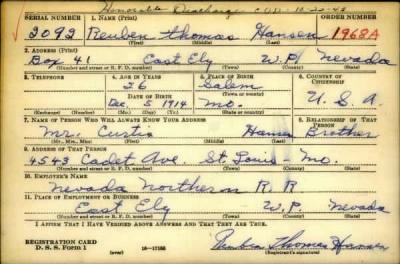 Honorable Discharge C.O.D. 10-20-45
SERIAL NUMBER 1. NAME (Print) ORDER NUMBER
2092 Reuben Thomas Hansen 1968A
(First) (Middle) (Last)
2. ADDRESS (Print)
Box 41 East Ely W.P. Nevada
(Number and street or R. F. D. number) (Town) (County) (State)
3. TELEPHONE 4. AGE IN YEARS 5. PLACE OF BIRTH 6. COUNTRY OF CITIZENSHIP
26 Salem
DATE OF BIRTH (Town or county)
Dec. 5 1914 Mo. U.S.A.
(Exchange) (Number) (Mo.) (Day) (Yr.) (State or country)
7. NAME OF PERSON WHO WILL ALWAYS KNOW YOUR ADDRESS 8. RELATIONSHIP OF THAT PERSON
Mr. Curtis Hansen Brother
(Mr., Mrs., Miss) (First) (Middle) (Last)
9. ADDRESS OF THAT PERSON
4543 Cadet Ave. St. Louis - Mo.
(Number and street or R. F. D. number) (Town) (County) (State)
10. EMPLOYER'S NAME
Nevada Northern R.R
11. PLACE OF EMPLOYMENT OR BUSINESS
East Ely W.P. Nevada
(Number and street or R. F. D. number) (Town) (County) (State)
I AFFIRM THAT I HAVE VERIFIED ABOVE ANSWERS AND THAT THEY ARE TRUE.
REGISTRATION CARD
D. S. S. Form 1 (over) 16-17105 Reuben Thomas Hansen
(Registrant's signature)